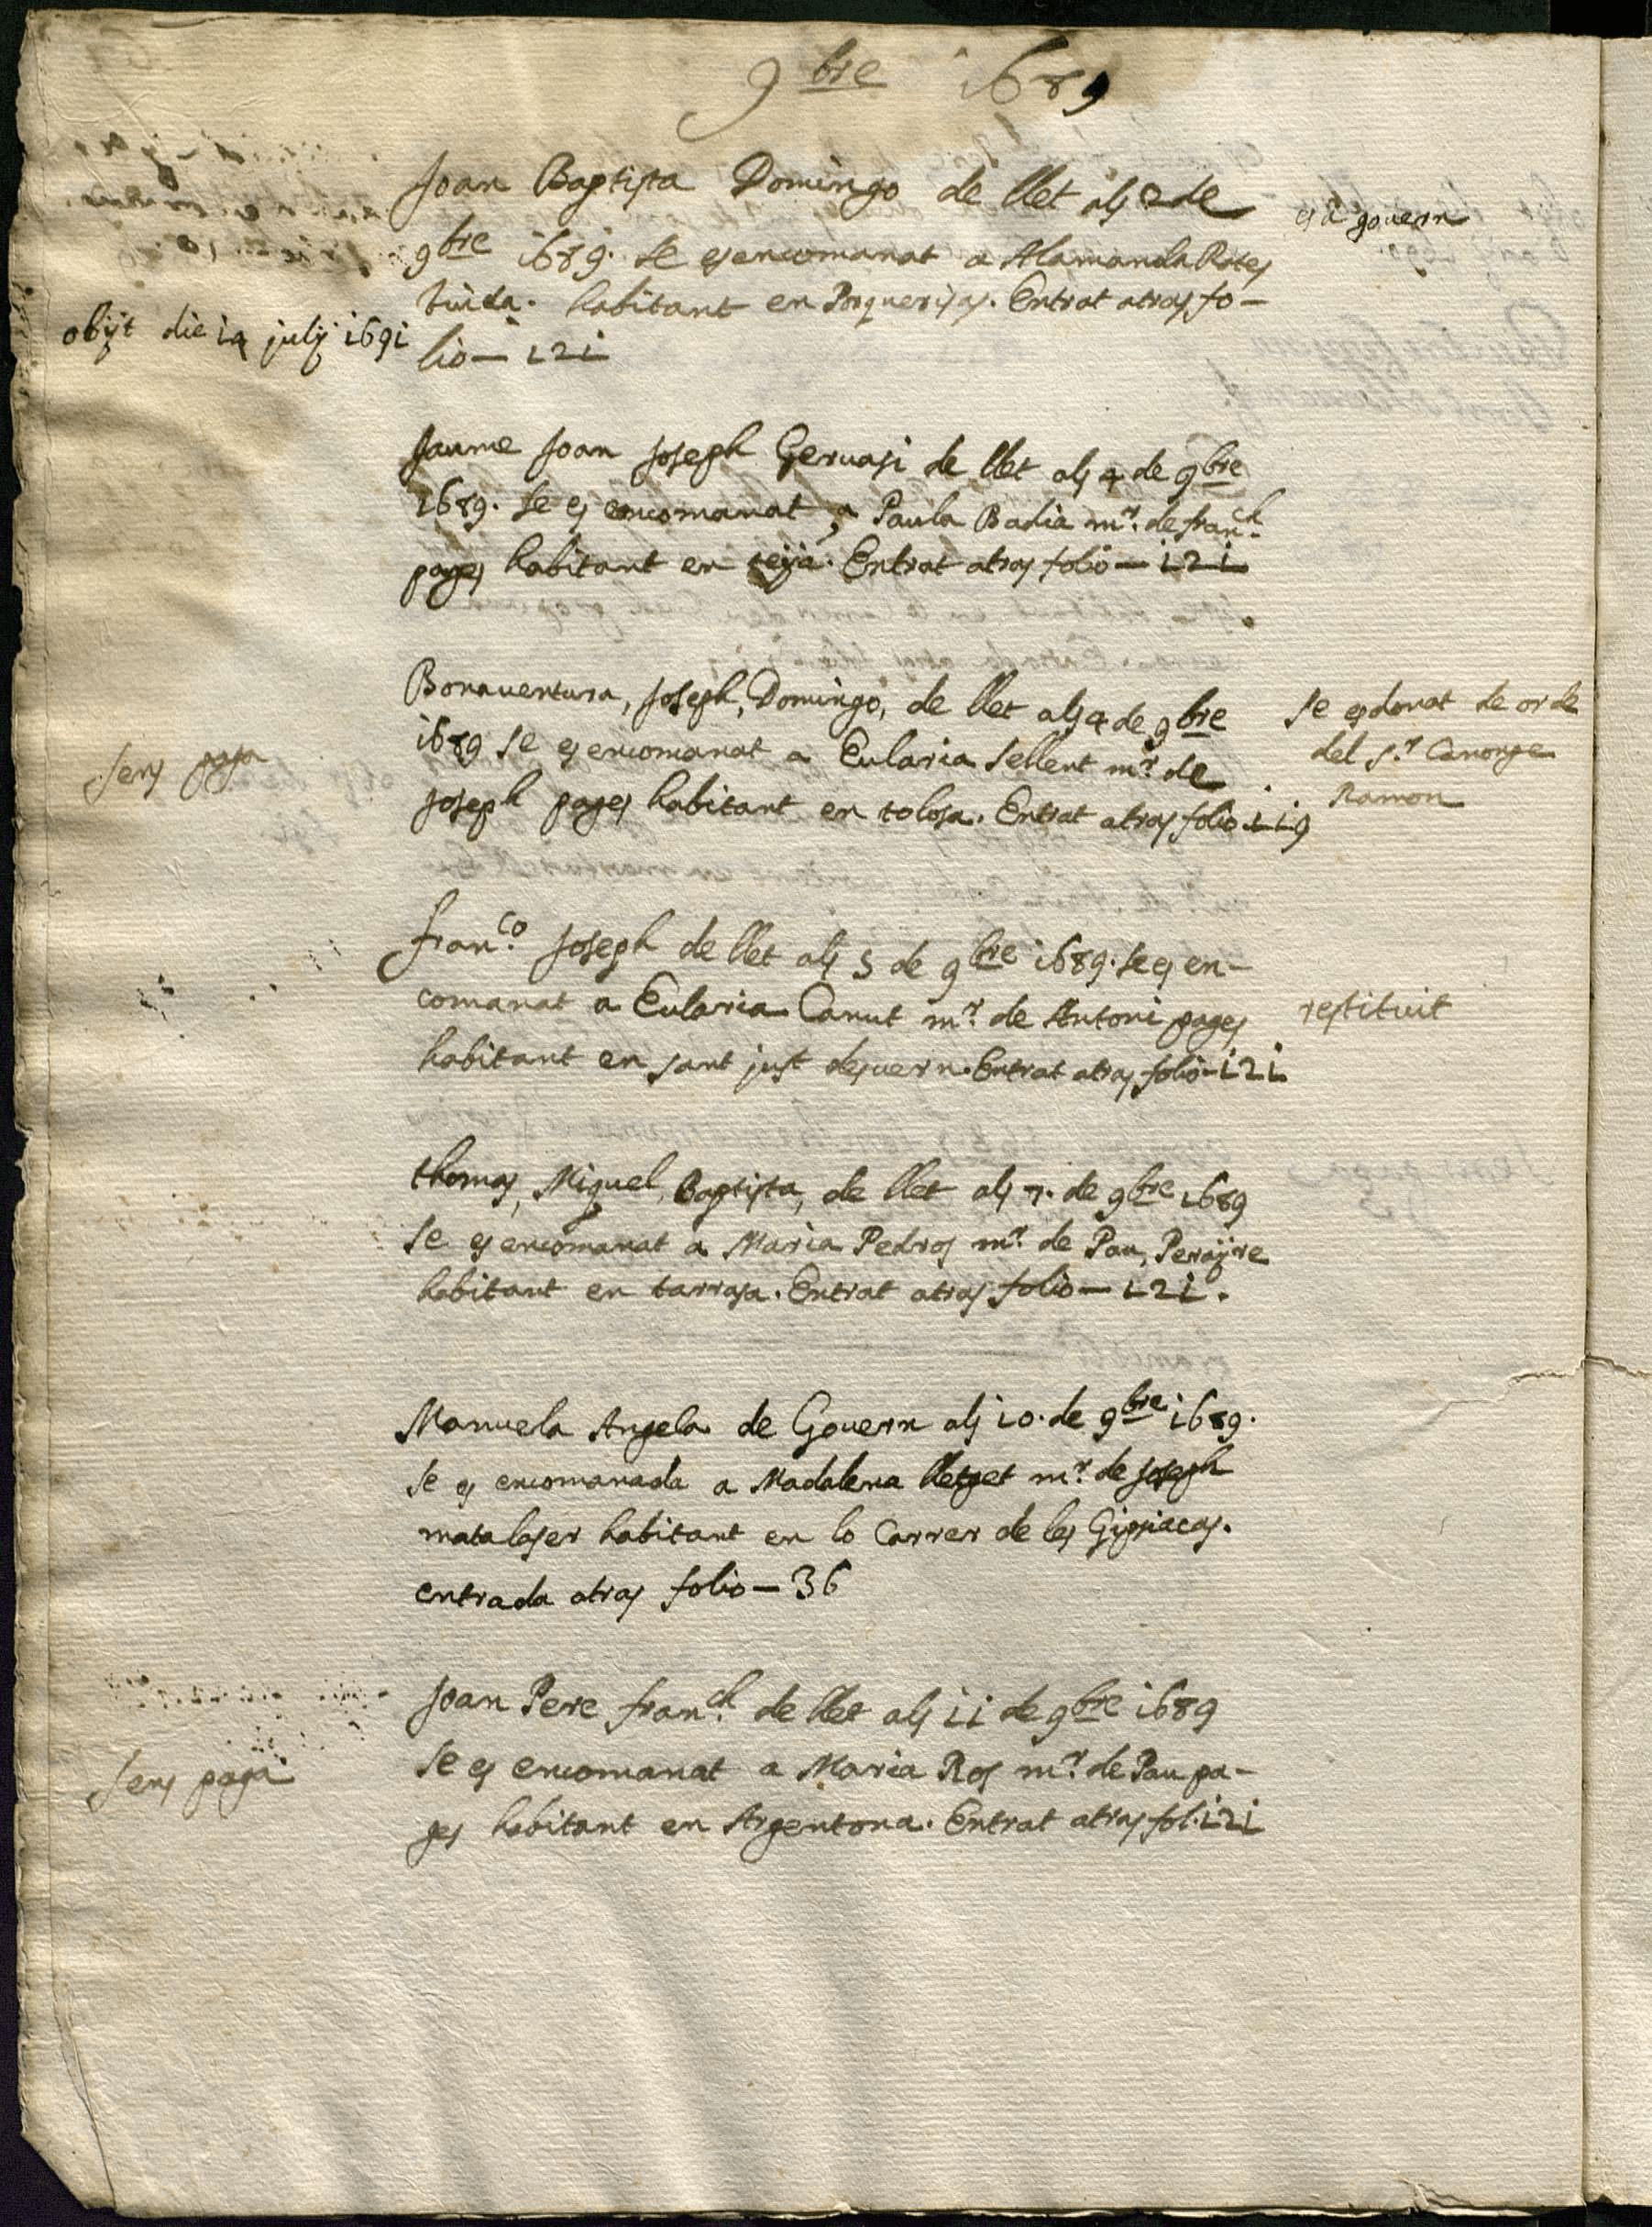 9bre 1689
Joan Baptista Domingo de llet als 2 de
9bre 1689. se es encomanat a Alamanda Roses
viuda. habitant en Porquerisas. Entrat atras fo-
lio — 121
es a govern
obijt die 14 julij 1691
Jaume Joan Joseph Gervasi de llet als 4 de 9bre
1689. se es encomanat, a Paula Badia mr. de franch
pages habitant en teÿa. Entrat atras folio — 121
Bonaventura, Joseph, Domingo, de llet als 4 de 9bre
1689 se es encomanat a Eularia Sellent mr. de
Joseph pages habitant en tolosa. Entrat atras folio 119
sens paga
se es donat de orde
del Sr. Canonge
Ramon
franco. Joseph de llet als 5 de 9bre 1689. se es en-
comanat a Eularia Canut mr. de Antoni pages
habitant en sant just desvern. Entrat atras folio - 121
restituit
thomas, Miquel, Baptista, de llet als 7. de 9bre 1689
se es encomanat a Maria Pedros mr. de Pau, Perayre
habitant en tarrasa. Entrat atras folio — 121.
Manuela Angela de Govern als 10. de 9bre 1689.
se es encomanada a Madalena lletget mr. de Joseph
matalaser habitant en lo Carrer de les
entrada atras folio — 36
Joan Pere franch. de llet als 11 de 9bre 1689
se es encomanat a Maria Ros mr. de Pau pa-
ges habitant en Argentona. Entrat atras fol. 121
sens paga